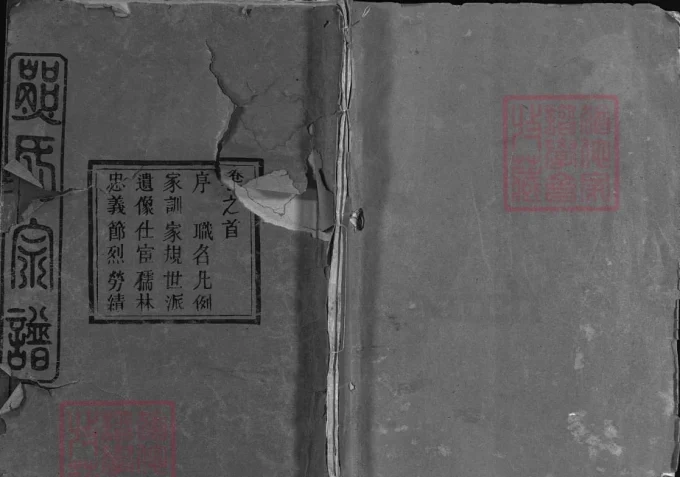 卷之首
序 職名凡例
家訓家規世派
遺像仕宦儒林
忠義節烈勞績
氏宗譜